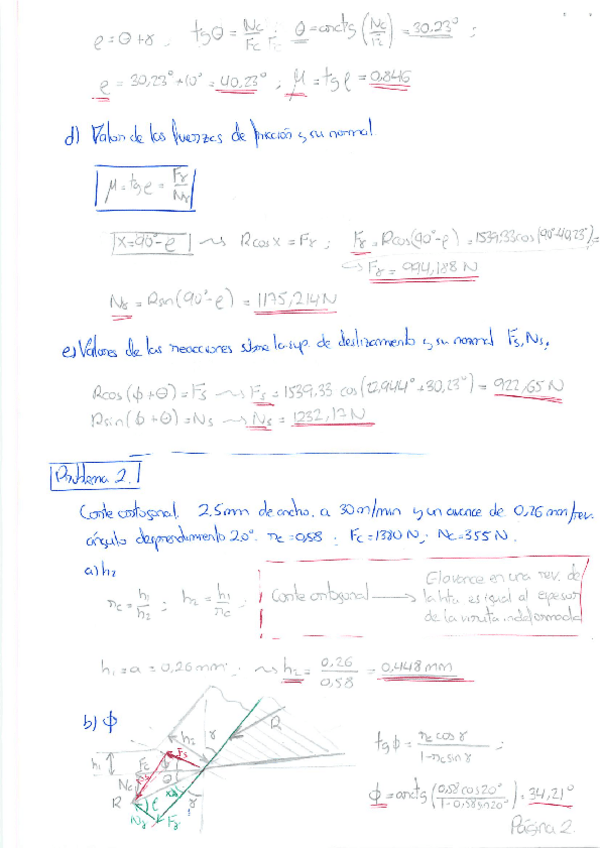 ρ = θ + γ ; tgθ = Nc/Fc ; θ = arctg (Nc/Fc) = 30,23° ;
ρ = 30,23° + 10° = 40,23° ; μ = tgρ = 0,846
d) Valor de las fuerzas de fricción y su normal
μ = tgρ = Fγ/Nγ
x = 90° - ρ ⇝ R cos x = Fγ ; Fγ = R cos (90° - ρ) = 1539,33 cos (90° - 40,23°) =
↪ Fγ = 994,188 N
Nγ = R sin (90° - ρ) = 1175,214 N
e) Valores de las reacciones sobre la sup. de deslizamiento y su normal Fs, Ns,
R cos (ϕ + θ) = Fs ⇝ Fs = 1539.33 cos (22,944° + 30,23°) = 922,65 N
R sin (ϕ + θ) = Ns ⇝ Ns = 1232,17 N
Problema 2.
Corte ortogonal. 2.5mm de ancho, a 30 m/min y un avance de 0,26 mm/rev.
ángulo desprendimiento 20°. rc = 0,58 ; Fc = 1380 N ; Nc = 355 N.
a) h2
rc = h1/h2 ; h2 = h1/rc ;
Corte ortogonal → El avance en una rev. de
la hta. es igual al espesor
de la viruta indeformada
h1 = a = 0,26 mm ; ⇝ h2 = 0,26/0,58 = 0,448 mm
b) ϕ
h2 γ R
h1 Fc Fs θ
Nc
R ρ γ
Nγ Fγ
tgϕ = rc cos γ / 1 - rc sin γ ;
ϕ = arctg (0,58 cos 20° / 1 - 0,58 sin 20°) = 34,21°
Página 2.